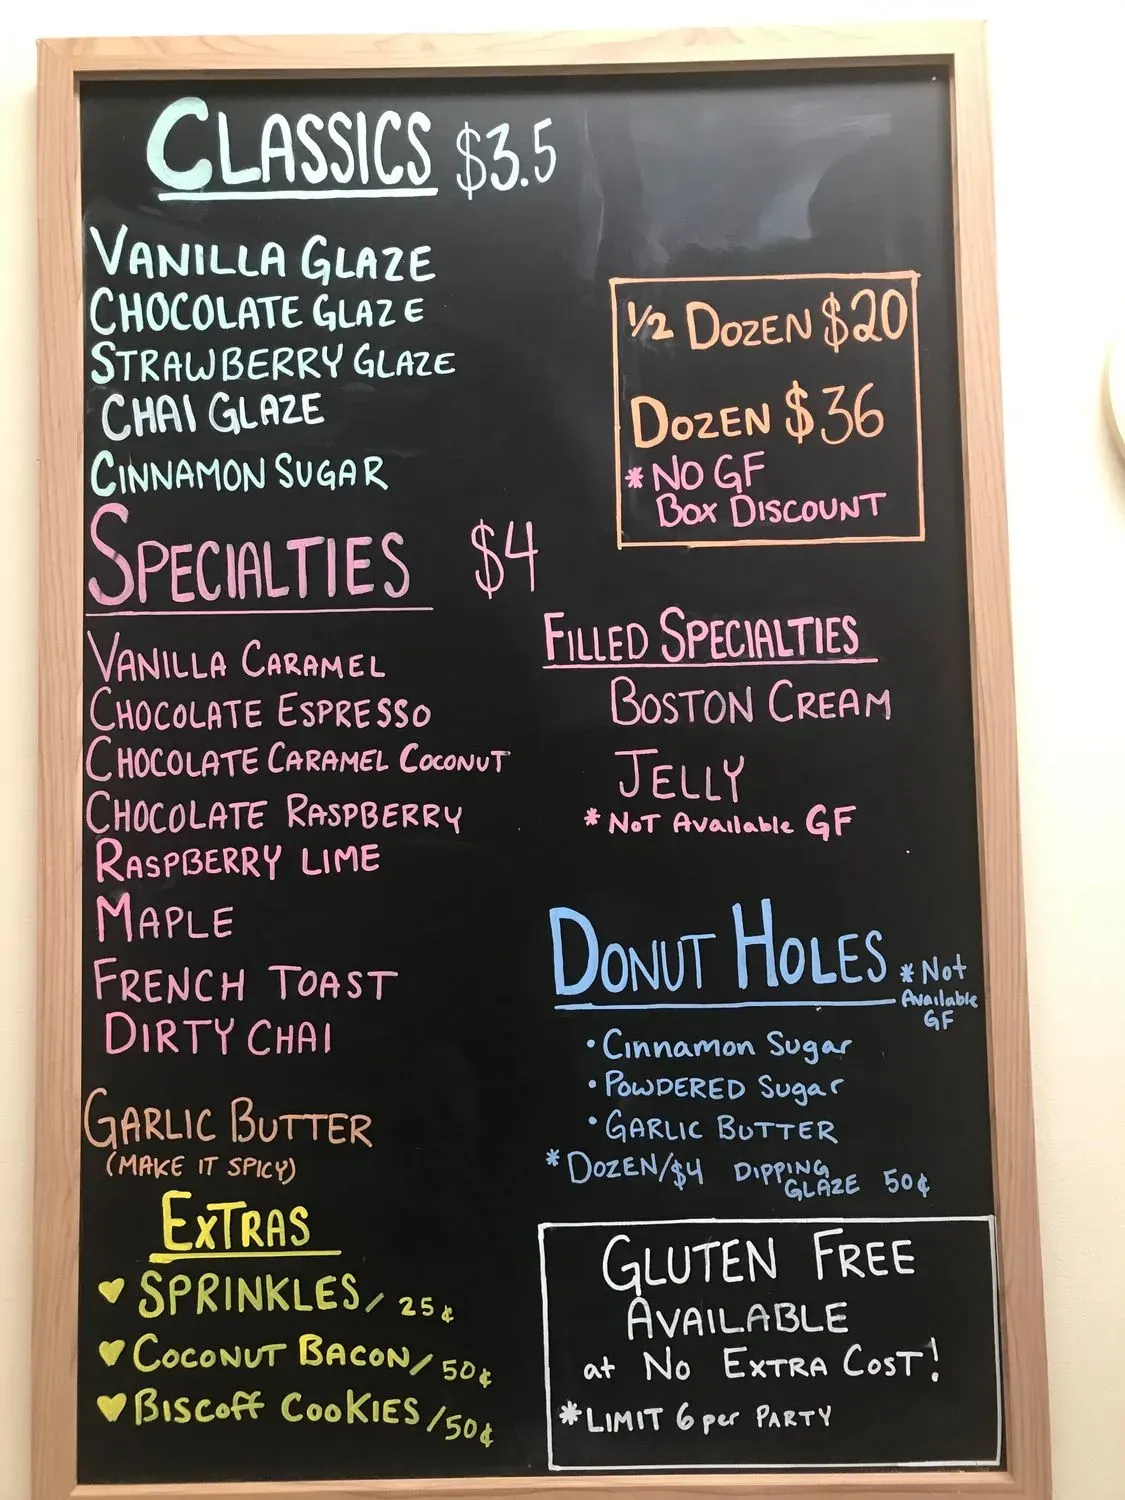 CLASSICS $3.5
VANILLA GLAZE
CHOCOLATE GLAZE
STRAWBERRY GLAZE
CHAI GLAZE
CINNAMON SUGAR
SPECIALTIES $4
VANILLA CARAMEL
CHOCOLATE ESPRESSO
CHOCOLATE CARAMEL COCONUT
CHOCOLATE RASPBERRY
RASPBERRY LIME
MAPLE
FRENCH TOAST
DIRTY CHAI
GARLIC BUTTER
(MAKE IT SPICY)
EXTRAS
♥ SPRINKLES / 25¢
♥ COCONUT BACON / 50¢
♥ Biscoff COOKIES / 50¢
1/2 DOZEN $20
DOZEN $36
* NO GF
BOX DISCOUNT
FILLED SPECIALTIES
BOSTON CREAM
JELLY
* NOT Available GF
DONUT HOLES * Not
Available
GF
• Cinnamon Sugar
• POWDERED Sugar
• GARLIC BUTTER
* DOZEN/$4 DIPPING
GLAZE 50¢
GLUTEN FREE
AVAILABLE
at NO EXTRA COST!
* LIMIT 6 per PARTY